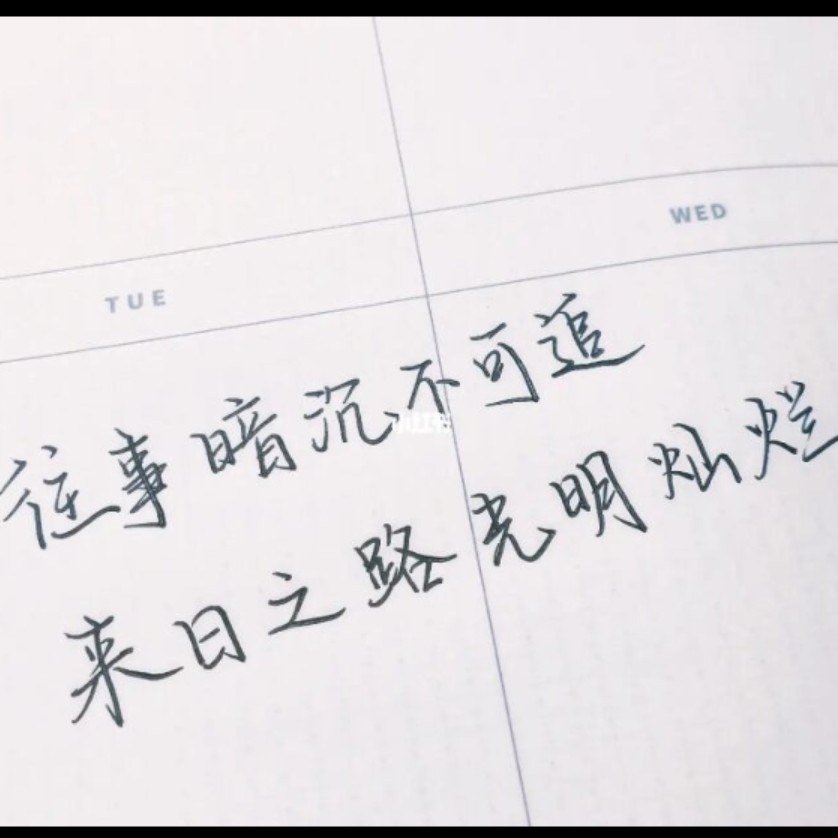 TUE
WED
往事暗沉不可追
来日之路光明灿烂
小红书